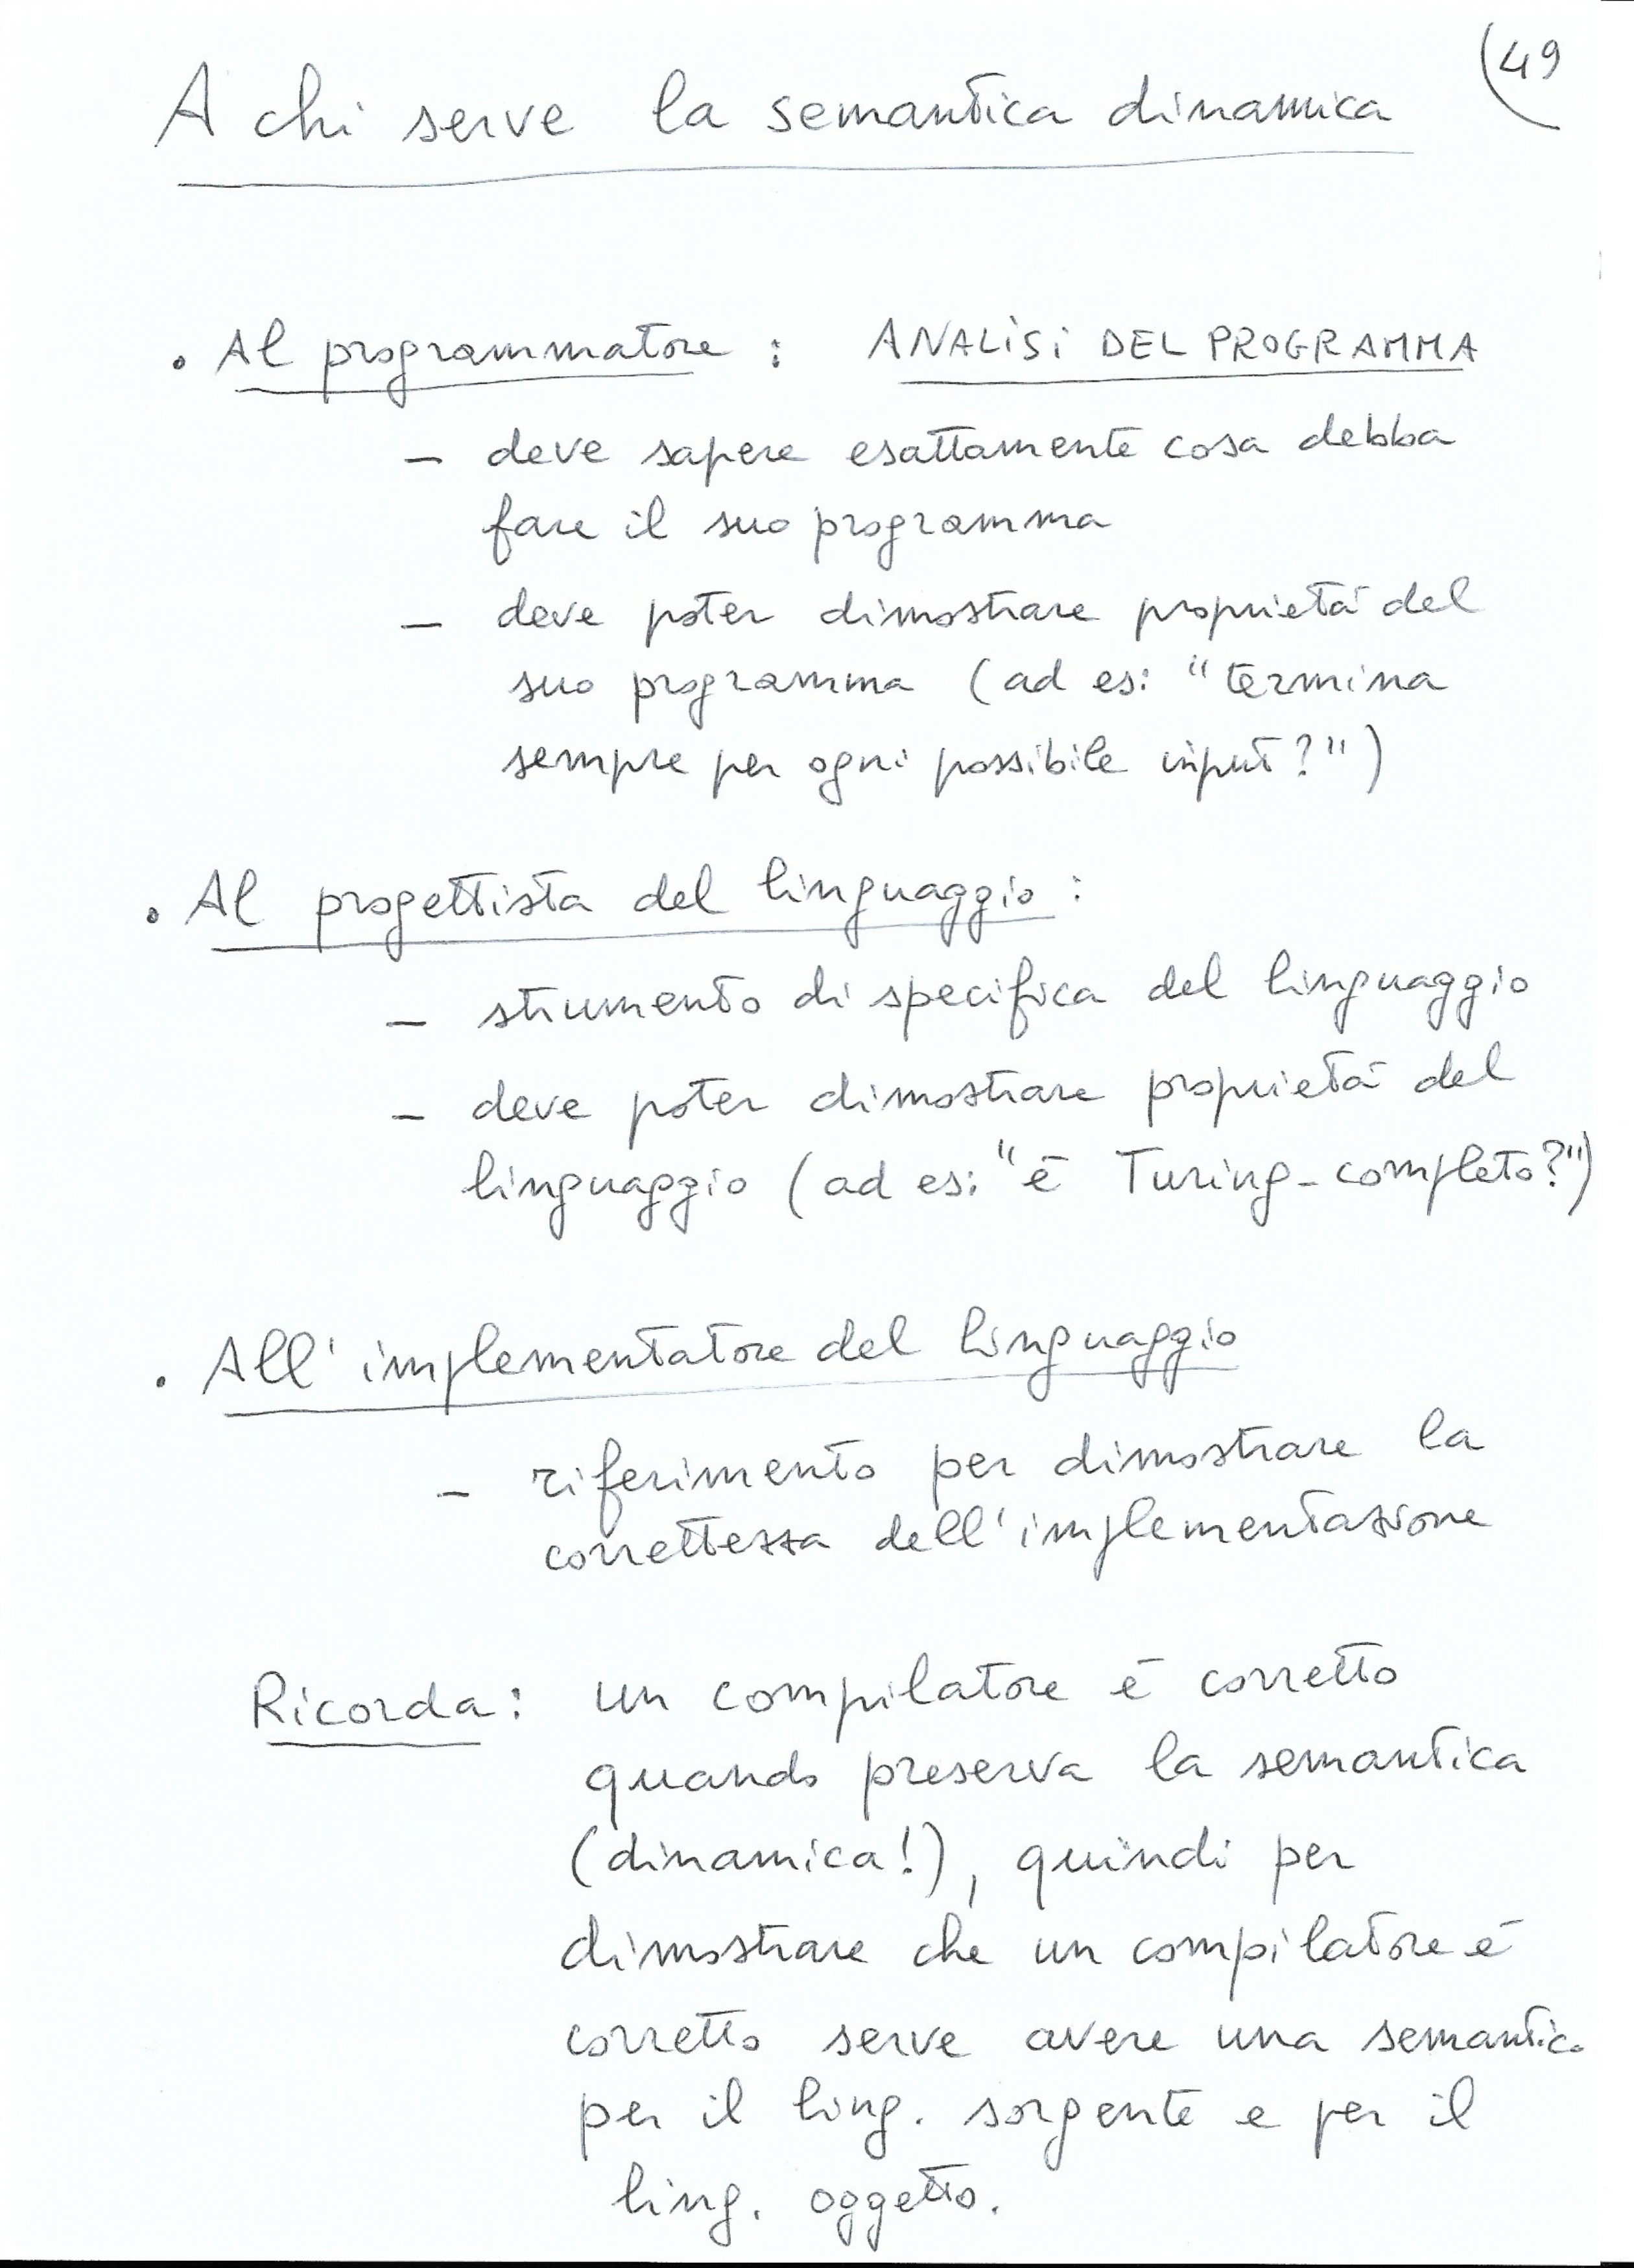 (49
A chi serve la semantica dinamica
• Al programmatore : ANALISI DEL PROGRAMMA
– deve sapere esattamente cosa debba
fare il suo programma
– deve poter dimostrare proprietà del
suo programma (ad es: "termina
sempre per ogni possibile input?")
• Al progettista del linguaggio :
– strumento di specifica del linguaggio
– deve poter dimostrare proprietà del
linguaggio (ad es: "è Turing-completo?")
• All'implementatore del linguaggio
– riferimento per dimostrare la
correttezza dell'implementazione
Ricorda: un compilatore è corretto
quando preserva la semantica
(dinamica!), quindi per
dimostrare che un compilatore è
corretto serve avere una semantica
per il ling. sorgente e per il
ling. oggetto.